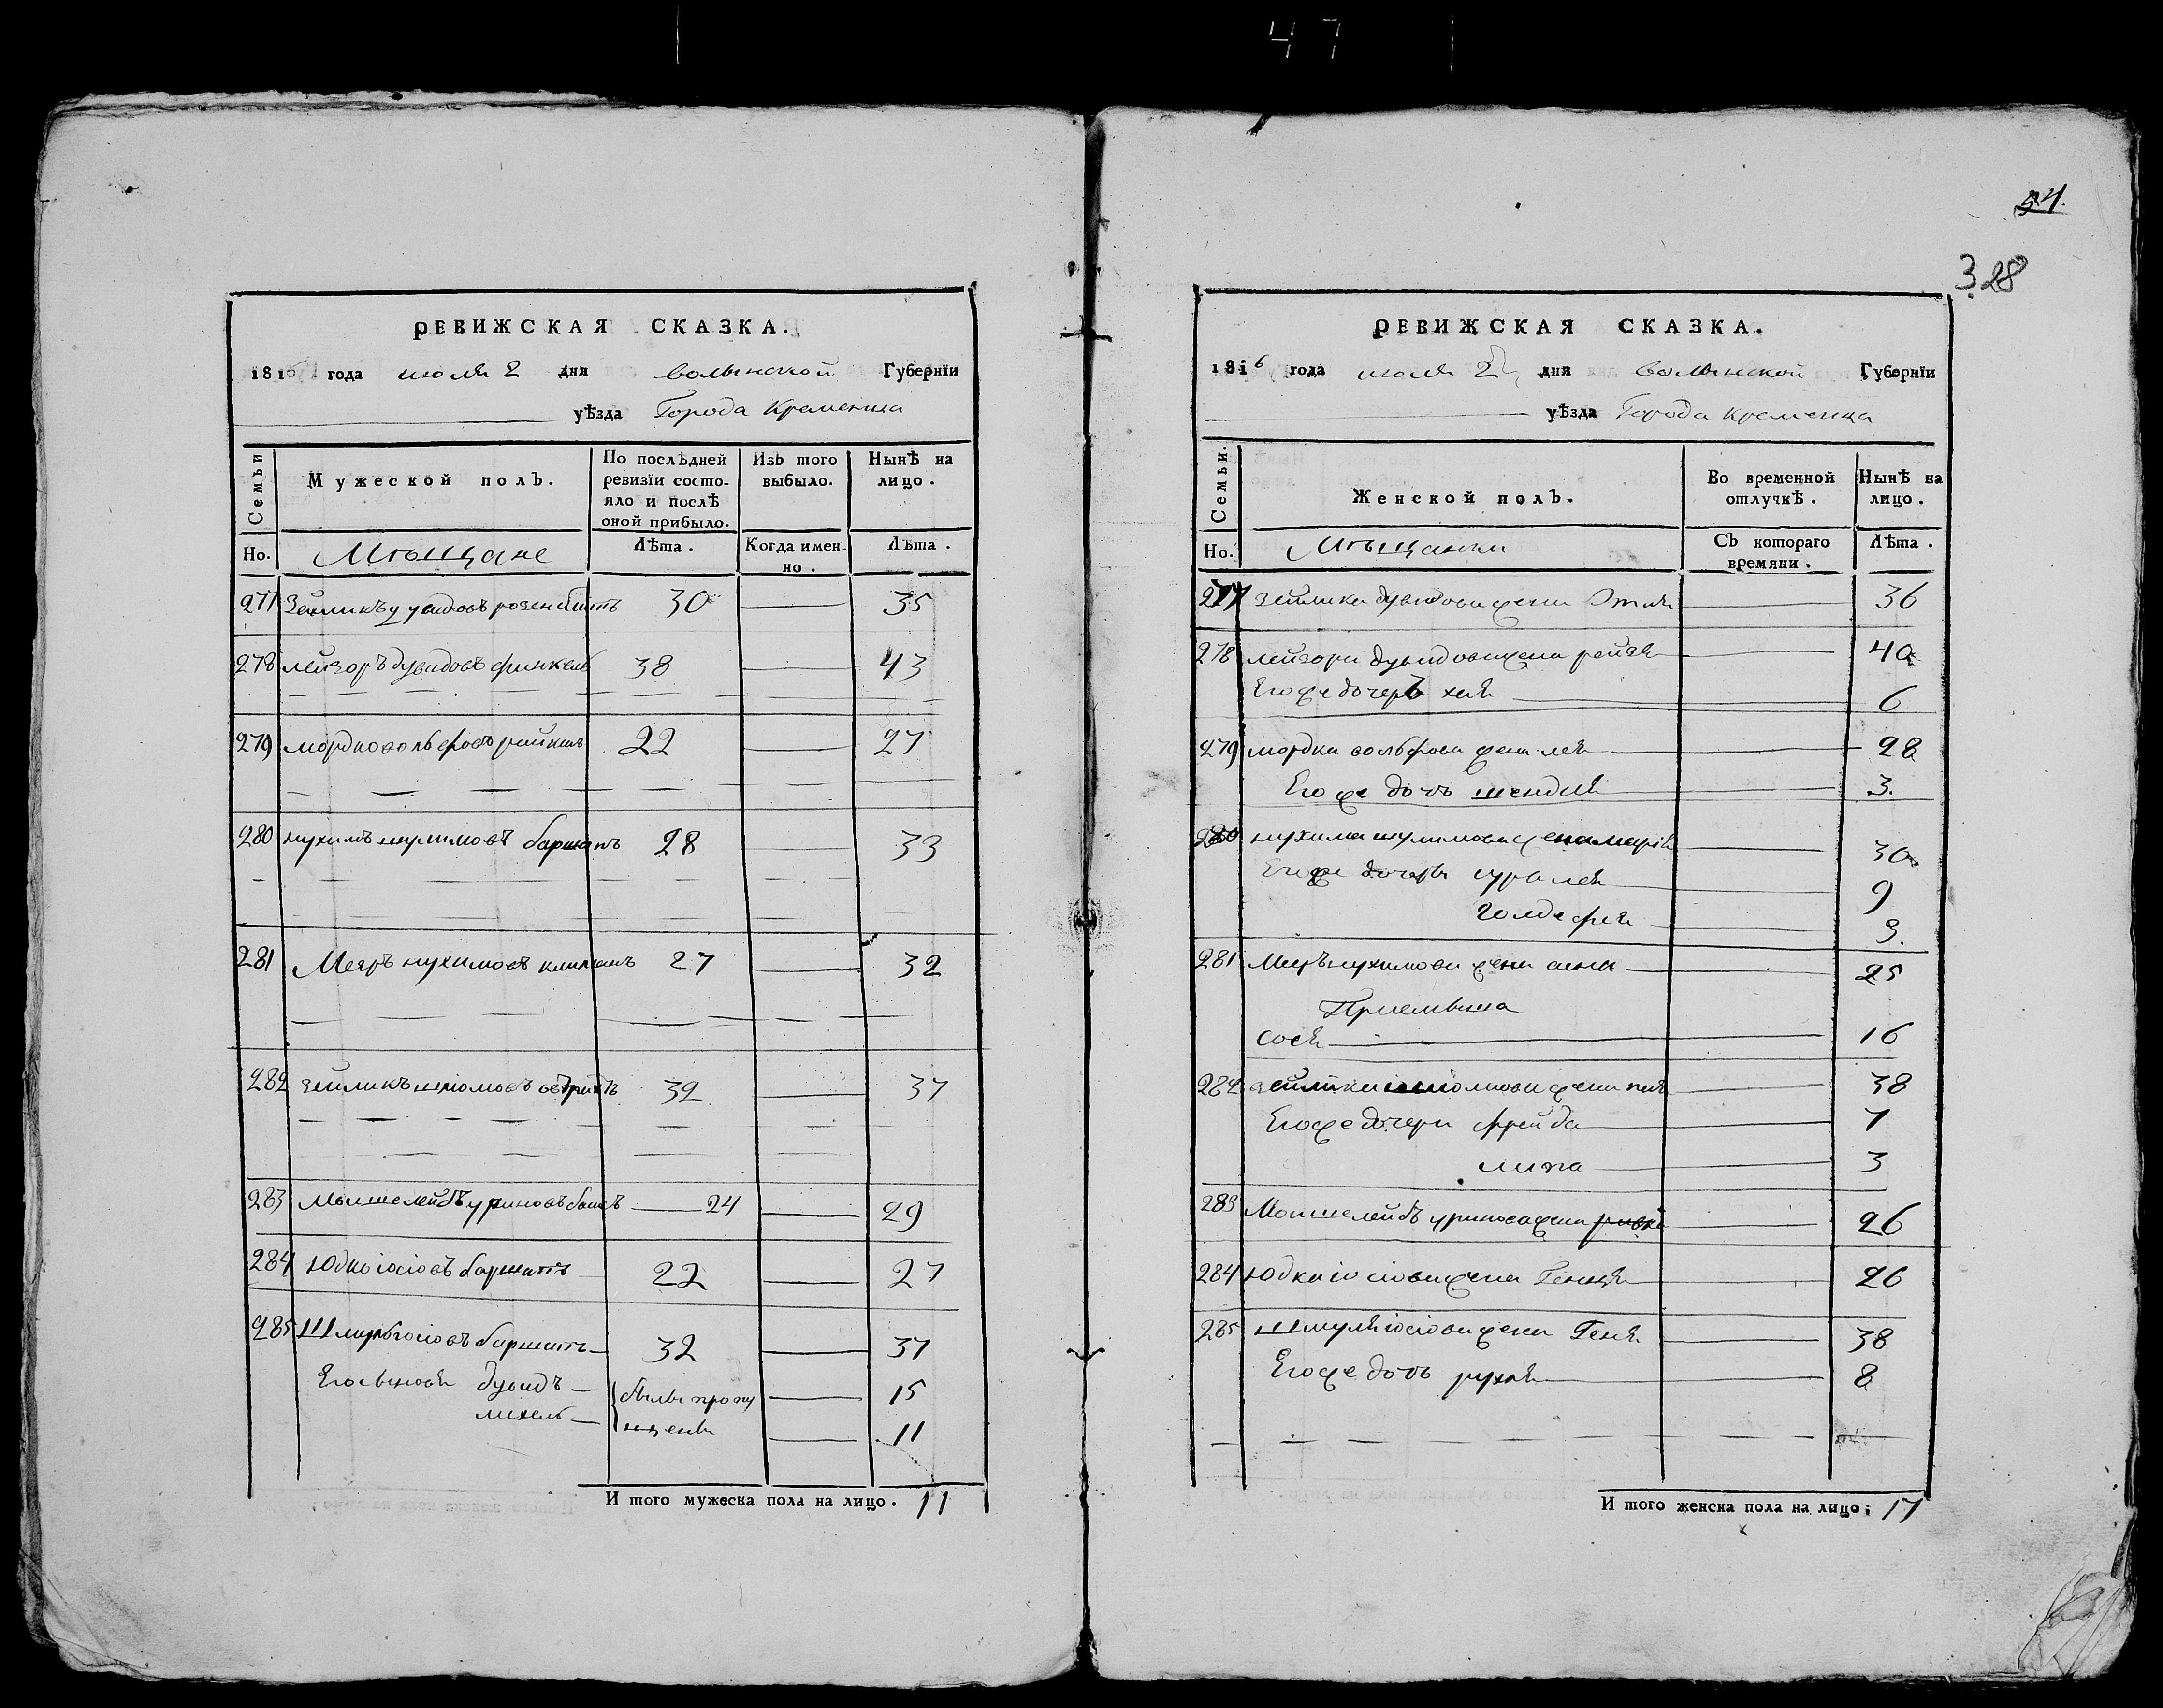 47
54.
328
РЕВИЖСКАЯ СКАЗКА.
1816 года июля 2 дня волынской Губернїи
уѣзда Города Кременца
Семьи
Мужеской полъ.
По послѣдней ревизїи состояло и послѣ оной прибыло.
Изъ того выбыло.
Нынѣ на лицо.
Но. Мѣщане Лѣта. Когда именно. Лѣта.
277 Зейликъ дувидовъ розенблитъ 30 35
278 лейзоръ дувидовъ финкель 38 43
279 мордко вольфовъ 22 27
280 нухимъ шулимовъ баршапъ 28 33
281 Мееръ нухимовъ 27 32
282 зейликъ шліомовъ 32 37
283 Мошелейбъ уриновъ 24 29
284 Юдко іосіовъ баршапъ 22 27
285 Шмуль іосіовъ баршапъ 32 37
Его сыновя дувидъ 15
михель 11
были пропущены
И того мужеска пола на лицо. 11
РЕВИЖСКАЯ СКАЗКА.
1816 года июля 2 дня волынской Губернїи
уѣзда Города кременца
Семьи.
Женской полъ.
Во временной отлучкѣ.
Нынѣ на лицо.
Но. Мѣщанки Съ котораго времяни. Лѣта.
277 зейлика дувидова жена Этля 36
278 лейзора дувидова жена рейзя 40
Его же дочерь хая 6
279 мордка вольфова жена лея 28
Его же дочь шендля 3.
280 нухима шулимова жена 30
Его же дочеры сура лея 9
голде фея 3.
281 Мееръ нухимова жена 25
Приемьшна
сося 16
282 зейлика шліомова жена 38
Его же дочери фрейда 7
липа 3
283 Мошелейбъ уринова жена ривка 26
284 Юдка іосіова жена Генця 26
285 шмуля іосіова жена Геня 38
Его же дочь рухля 8
И того женска пола на лицо. 17